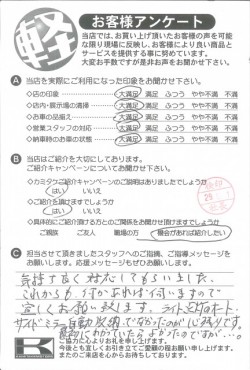 軽
お客様アンケート
当店では、お買い上げ頂いたお客様の声を可能
な限り現場に反映し、お客様により良い商品と
サービスを提供する事に努めています。
大変お手数ですが是非お声をお聞かせ下さい。
A 当店を実際にご利用になった印象をお聞かせ下さい。
◇店の印象 大満足 満足 ふつう やや不満 不満
◇店内・展示場の清掃 大満足 満足 ふつう やや不満 不満
◇お車の品揃え 大満足 満足 ふつう やや不満 不満
◇営業スタッフの対応 大満足 満足 ふつう やや不満 不満
◇納車時のお車の状態 大満足 満足 ふつう やや不満 不満
B 当店はご紹介を大切にしております。
ご紹介キャンペーンについてお聞かせ下さい。
◇カミタウご紹介キャンペーンのご説明はありましたでしょうか
はい いいえ
◇ご紹介を頂けますでしょうか
はい いいえ
◇具体的にご紹介頂ける方とのご関係をお聞かせ頂けますでしょうか
ご親族 ご友人 職場の方 機会があれば紹介したい
C 担当させて頂きましたスタッフへのご指摘、ご指導メッセージを
お願いします。応援メッセージもぜひお願いします。
気持ち良く対応してもらいました。
これからも 何かあれば伺いますので
宜しくお願い致します。ライトとオート
サイドミラー自動
K
ご協力に心よりお礼を申し上げます。
今後とも宜しくお引き立てご愛顧の程お願い申し上げます。
またのご来店を心からお待ちしております。